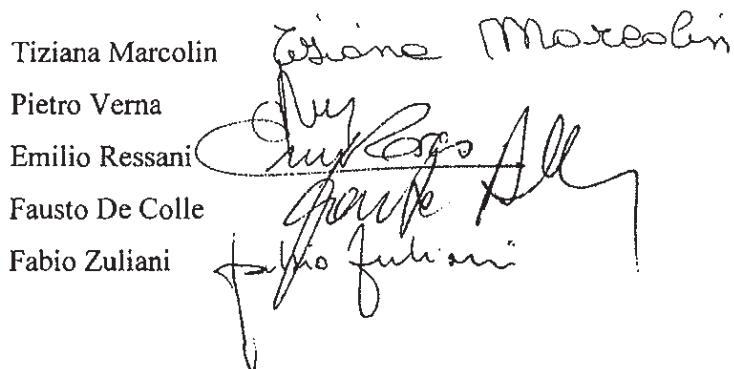 Tiziana Marcolin Tiziana Marcolin
Pietro Verna
Emilio Ressani
Fausto De Colle
Fabio Zuliani Fabio Zuliani